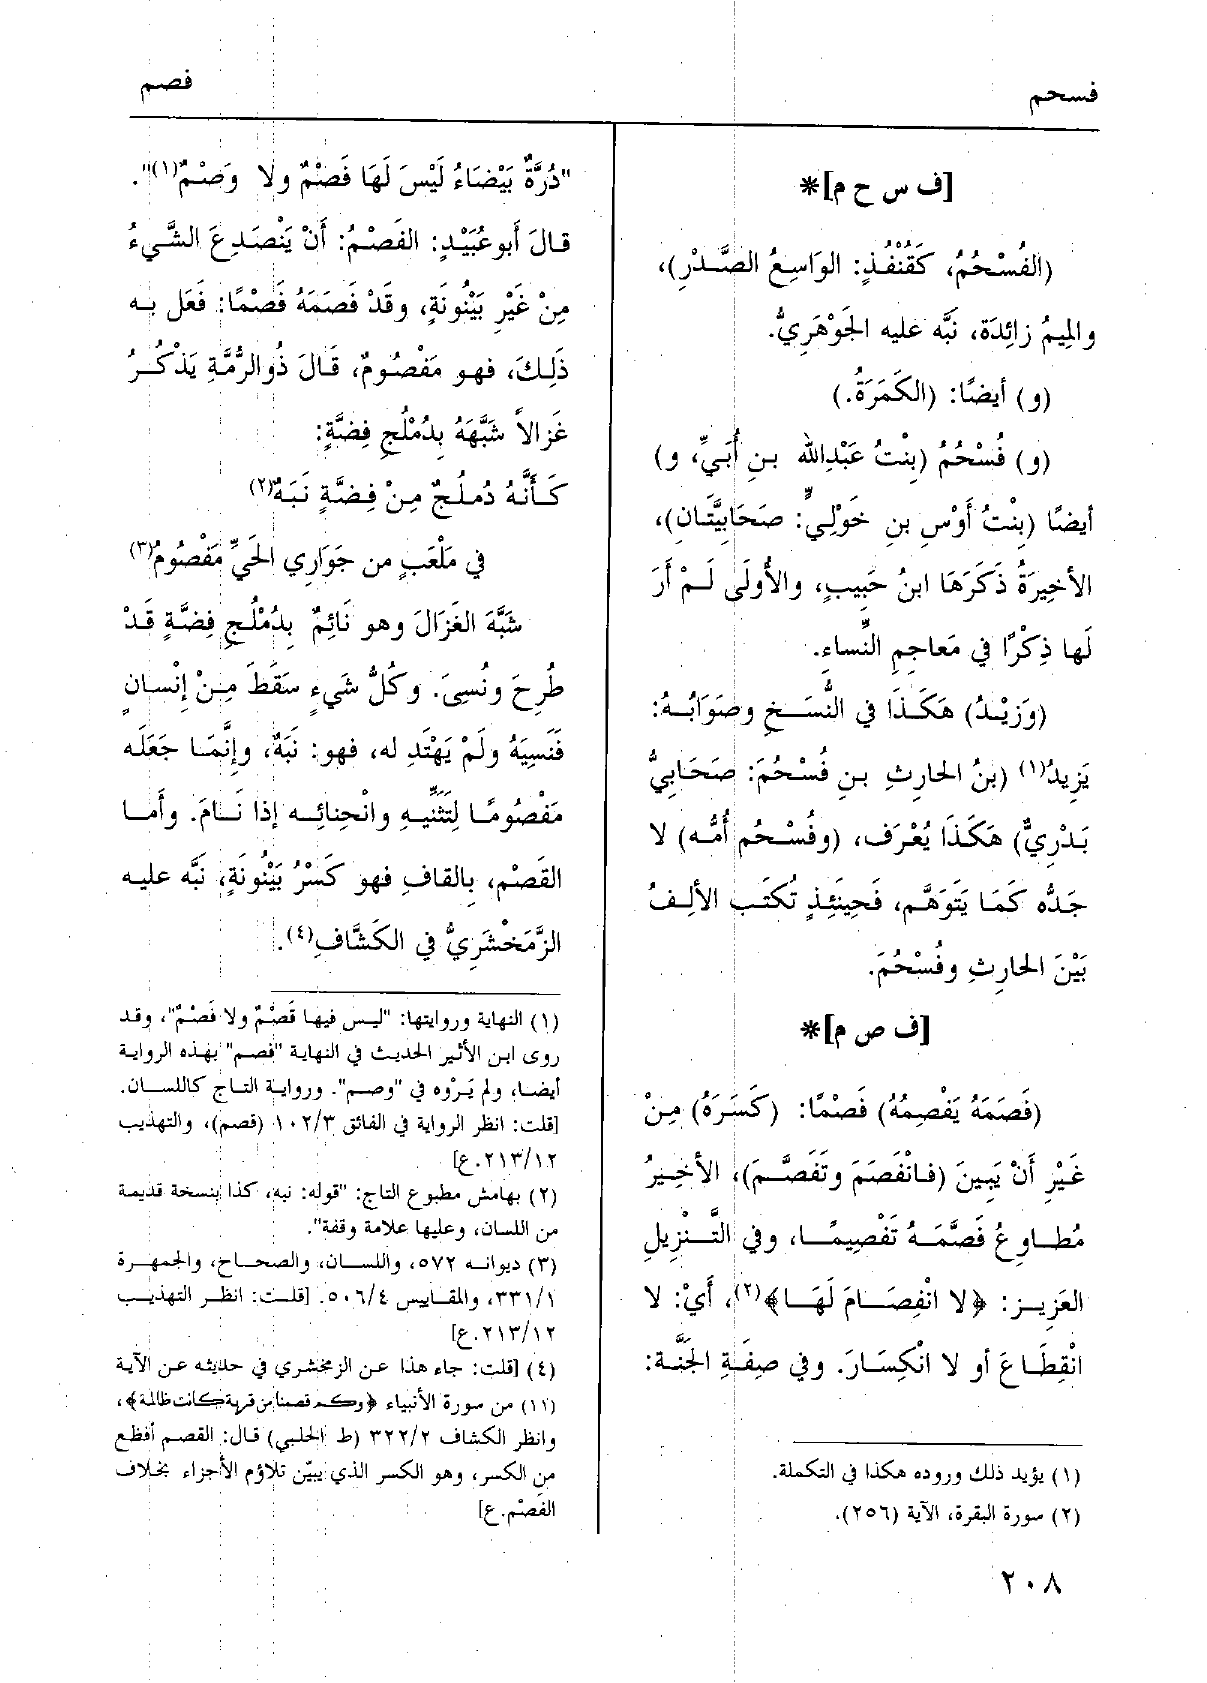 فسحم
فصم
[ف س ح م]*
(الفُسْحُمُ، كَقُنْفُذٍ: الوَاسِعُ الصَّدْرِ)،
والمِيمُ زائِدَة، نَبَّه عليه الجَوْهَرِيُّ.
(و) أيضًا: (الكَمَرَةُ.)
(و) فُسْحُمُ (بِنْتُ عَبْدِالله بنِ أُبَيٍّ، و)
أيضًا (بِنْتُ أَوْسِ بنِ خَوْلِيٍّ: صَحَابِيَّتَانِ)،
الأخِيرَةُ ذَكَرَهَا ابنُ حَبِيبٍ، والأُولَى لَمْ أَرَ
لَها ذِكْرًا في مَعاجِمِ النِّساءِ.
(وَزَيْدُ) هَكَذَا في النُّسَخِ وصَوَابُهُ:
يَزِيدُ(١) (بنُ الحارِثِ بنِ فُسْحُمَ: صَحَابِيٌّ
بَدْرِيٌّ) هَكَذَا يُعْرَف، (وفُسْحُم أُمُّه) لا
جَدُّه كَمَا يَتَوَهَّم، فَحِينَئِذٍ تُكتَب الأَلِفُ
بَيْنَ الحارِثِ وفُسْحُمَ.
[ف ص م]*
(فَصَمَهُ يَفْصِمُهُ) فَصْمًا: (كَسَرَهُ) مِنْ
غَيْرِ أَنْ يَبِينَ (فانْفَصَمَ وتَفَصَّمَ)، الأخِيرُ
مُطاوِعُ فَصَّمَهُ تَفْصِيمًا، وفي التَّنْزِيلِ
العَزِيزِ: ﴿لا انْفِصَامَ لَهَا﴾(٢)، أَيْ: لا
انْقِطَاعَ أو لا انْكِسَارَ. وفي صِفَةِ الجَنَّة:
(١) يؤيد ذلك وروده هكذا في التكملة.
(٢) سورة البقرة، الآية (٢٥٦).
"دُرَّةٌ بَيْضَاءُ لَيْسَ لَهَا فَصْمٌ ولا وَصْمٌ(١)".
قالَ أبوعُبَيْدٍ: الفَصْمُ: أَنْ يَنْصَدِعَ الشَّيءُ
مِنْ غَيْرِ بَيْنُونَةٍ، وقَدْ فَصَمَهُ فَصْمًا: فَعَل بِه
ذَلِكَ، فهو مَفْصُومٌ، قَالَ ذُوالرُّمَّةِ يَذْكُرُ
غَزالاً شَبَّهَهُ بِدُمْلُجِ فِضَّةٍ:
كَأَنَّهُ دُملُجٌ مِنْ فِضَّةٍ نَبَهٌ(٢)
في مَلْعَبٍ من جَوَارِي الحَيِّ مَفْصُومُ(٣)
شَبَّهَ الغَزَالَ وهو نَائِمٌ بِدُمْلُجِ فِضَّةٍ قَدْ
طُرِحَ ونُسِيَ. وكُلُّ شَيءٍ سَقَطَ مِنْ إِنْسانٍ
فَنَسِيَهُ ولَمْ يَهْتَدِ له، فهو: نَبَهٌ، وإِنَّمَا جَعَلَه
مَفْصُومًا لِتَثَنِّيهِ وانْحِنائِه إذا نَامَ. وأَما
القَصْم، بِالقافِ فهو كَسْرُ بَيْنُونَةٍ، نَبَّه عليه
الزَّمَخْشَرِيُّ في الكَشَّافِ(٤).
(١) النهاية وروايتها: "ليس فيها قَصْمٌ ولا فَصْمٌ"، وقد
روى ابن الأثير الحديث في النهاية "فصم" بهذه الرواية
أيضا، ولم يَرْوه في "وصم". ورواية التاج كاللسان.
[قلت: انظر الرواية في الفائق ١٠٢/٣ (قصم)، والتهذيب
٢١٣/١٢.ع]
(٢) بهامش مطبوع التاج: "قوله: نبه، كذا بنسخة قديمة
من اللسان، وعليها علامة وقفة".
(٣) ديوانه ٥٧٢، واللسان، والصحاح، والجمهرة
٣٣١/١، والمقاييس ٥٠٦/٤. [قلت: انظر التهذيب
٢١٣/١٢.ع]
(٤) [قلت: جاء هذا عن الزمخشري في حديثه عن الآية
(١١) من سورة الأنبياء ﴿وكم قصمنا من قرية كانت ظالمة﴾،
وانظر الكشاف ٣٢٢/٢ (ط الحلبي) قال: القصم أفظع
من الكسر، وهو الكسر الذي يبيّن تلاؤم الأجزاء بخلاف
الفَصْم.ع]
٢٠٨